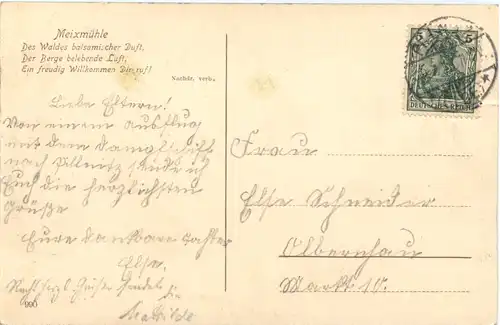 Meixmühle
Des Waldes balsamischer Duft,
Der Berge belebende Luft,
Ein freudig Willkommen Dir ruf!
Nachdr. verb.
Liebe Eltern!
Von einem Ausflug
mit dem Dampfschiff
nach Pillnitz sende ich
Euch die herzlichsten
Grüße
Eure dankbare Tochter
Else.
Mathilde
990
5 5
DEUTSCHES REICH
Frau
Else Schneider
Olbernhau
Markt 10.